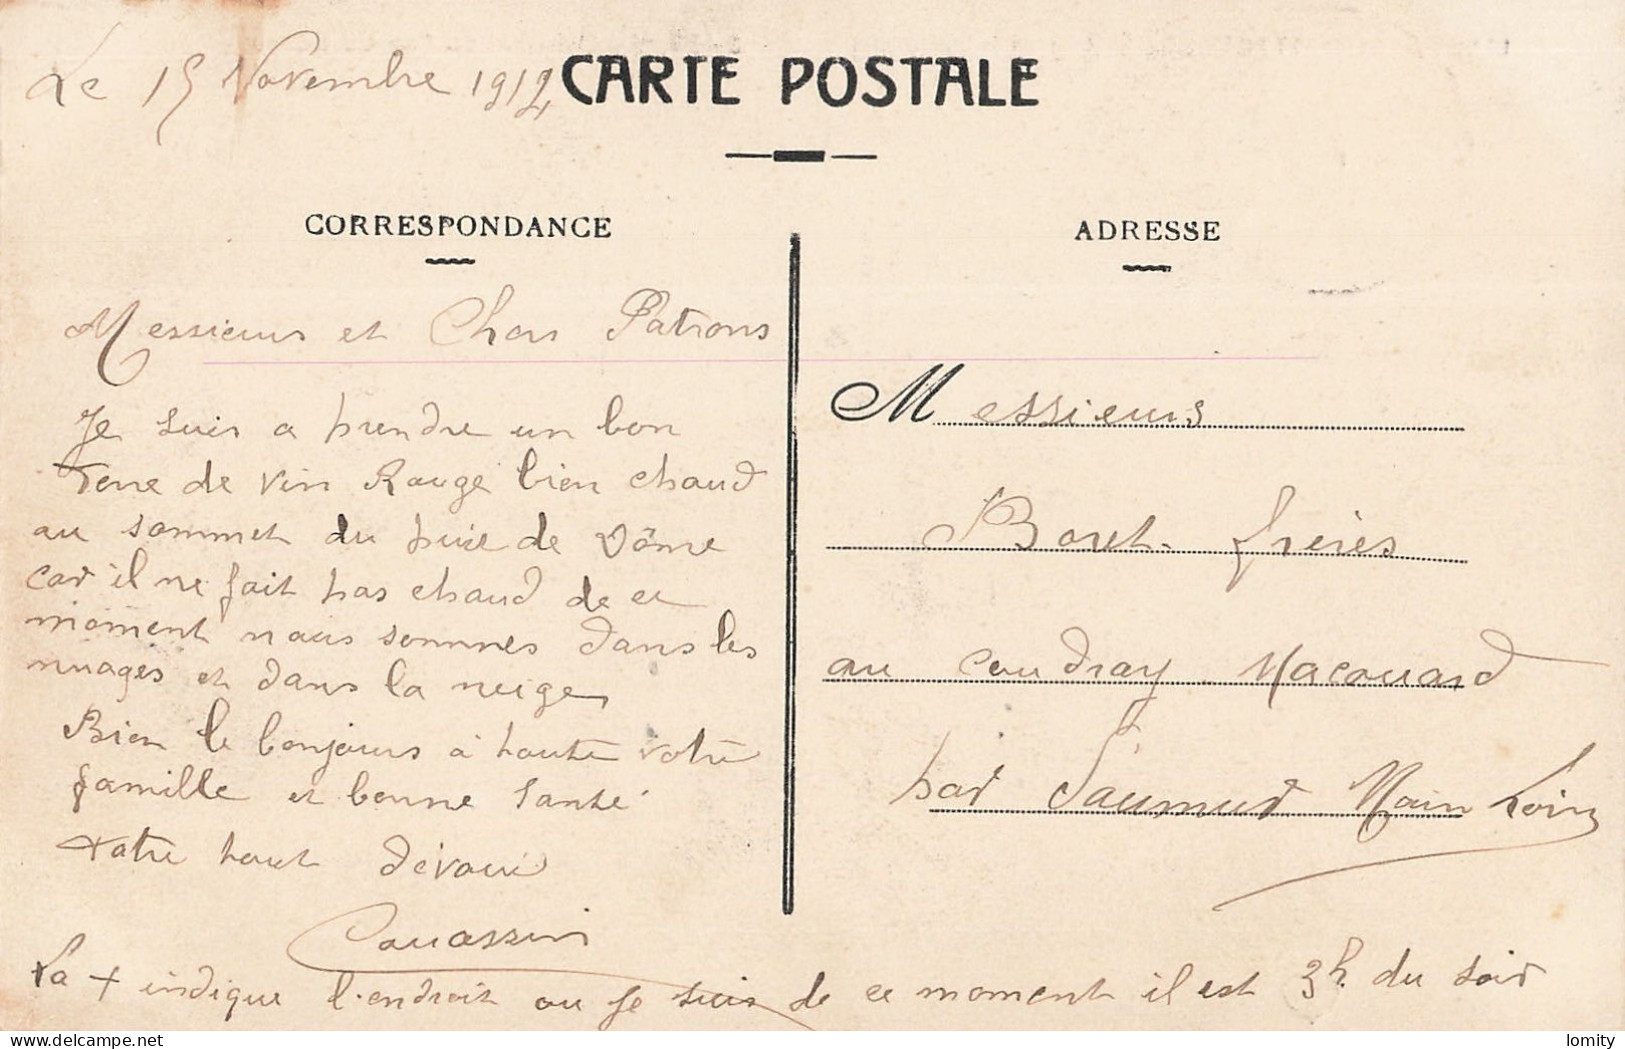 Le 15 Novembre 1912
CARTE POSTALE
CORRESPONDANCE
Messieurs et Chers Patrons
Je suis a prendre un bon
verre de vin Rouge bien chaud
au sommet du puie de Dôme
car il ne fait pas chaud de ce
moment nous sommes dans les
nuages et dans la neige
Bien le bonjours à toute votre
famille et bonne santé
Votre tout dévoué
La + indique l'endroit ou je suis de ce moment il est 3h. du soir
ADRESSE
Messieurs
Boret frères
au Coudray Macouard
par Saumur Main Loire
delcampe.net
lomity